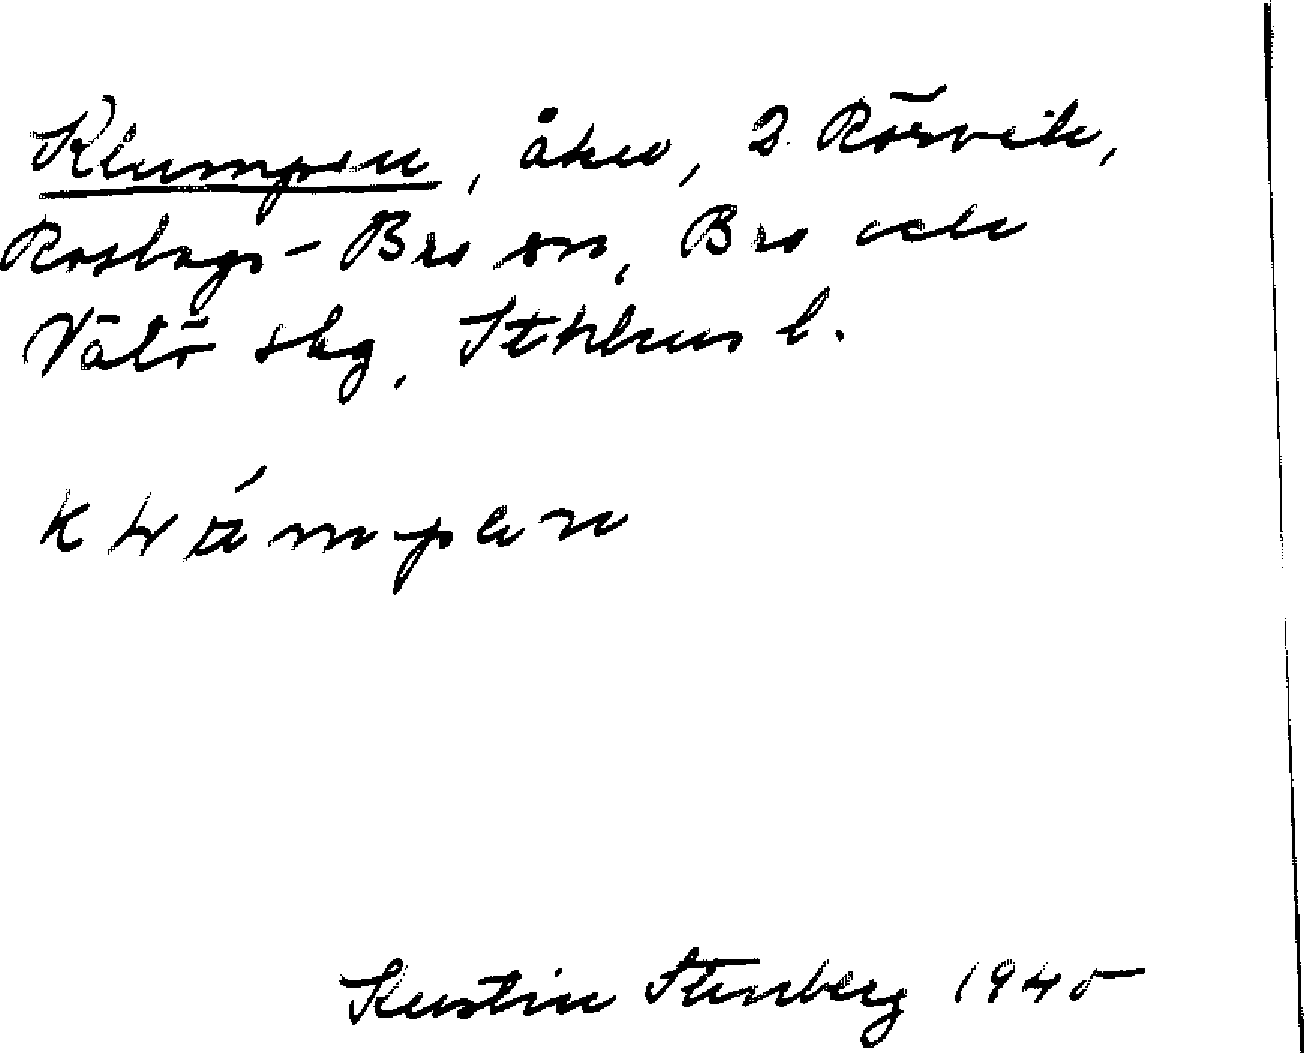 Klumpen, åker, 2. Rörvik,
Roslags-Bro sn, Bro och
Vätö skg, Sthlms l.
Kerstin Stenberg 1945